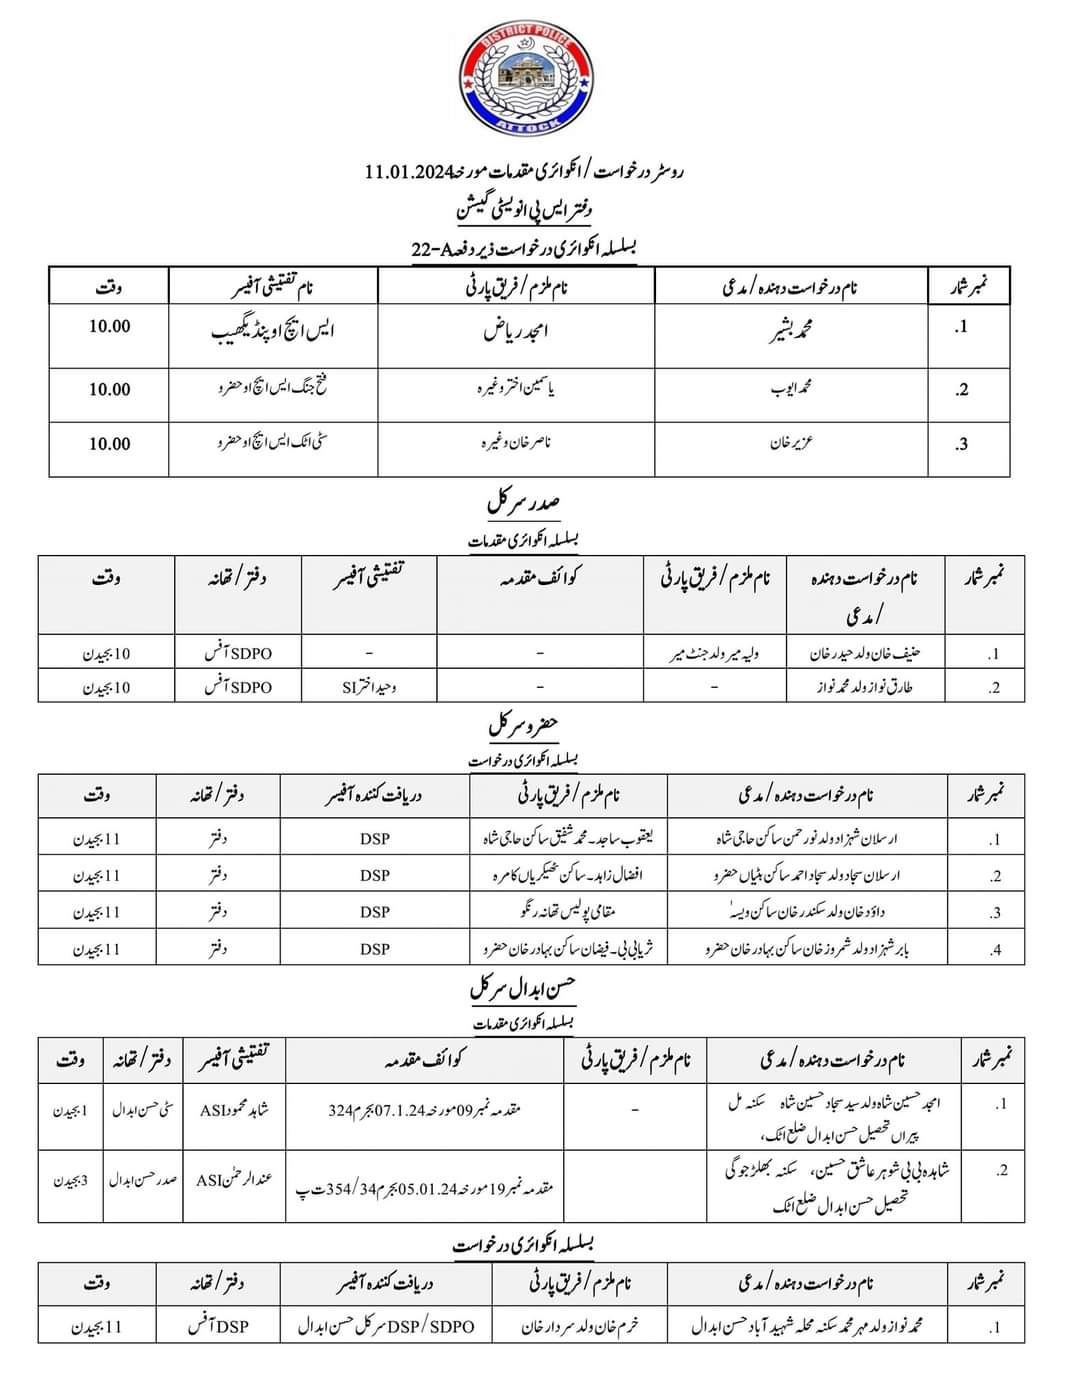 DISTRICT POLICE
ATTOCK
روسٹر درخواست/انکوائری مقدمات مورخہ 11.01.2024
دفتر ایس پی انویسٹی گیشن
بسلسلہ انکوائری درخواست ذیر دفعہ 22-A
نمبر شمار نام درخواست دہندہ/مدعی نام ملزم/فریق پارٹی نام تفتیشی آفیسر وقت
1. محمد بشیر امجد ریاض ایس ایچ او پنڈیگھیب 10.00
2. محمد ایوب یاسمین اختر وغیرہ فتح جنگ ایس ایچ او حضرو 10.00
3. عزیر خان ناصر خان وغیرہ سٹی اٹک ایس ایچ او حضرو 10.00
صدر سرکل
بسلسلہ انکوائری مقدمات
نمبر شمار نام درخواست دہندہ نام ملزم/فریق پارٹی کوائف مقدمہ تفتیشی آفیسر دفتر/تھانہ وقت
/مدعی
1. حنیف خان ولد حیدر خان ولیہ میر ولد جنٹ میر - - SDPO آفس 10 بجیدن
2. طارق نواز ولد محمد نواز - - وحید اختر SI SDPO آفس 10 بجیدن
حضرو سرکل
بسلسلہ انکوائری درخواست
نمبر شمار نام درخواست دہندہ/مدعی نام ملزم/فریق پارٹی دریافت کنندہ آفیسر دفتر/تھانہ وقت
1. ارسلان شہزاد ولد نور حمن ساکن حاجی شاہ یعقوب ساجد۔ محمد شفیق ساکن حاجی شاہ DSP دفتر 11 بجیدن
2. ارسلان سجاد ولد سجاد احمد ساکن بٹیاں حضرو افضال زاہد۔ ساکن ٹھیکریاں کامرہ DSP دفتر 11 بجیدن
3. داؤد خان ولد سکندر خان ساکن ویسہ مقامی پولیس تھانہ رنگو DSP دفتر 11 بجیدن
4. بابر شہزاد ولد شمروز خان ساکن بہادر خان حضرو ثریا بی بی۔ فیضان ساکن بہادر خان حضرو DSP دفتر 11 بجیدن
حسن ابدال سرکل
بسلسلہ انکوائری مقدمات
نمبر شمار نام درخواست دہندہ/مدعی نام ملزم/فریق پارٹی کوائف مقدمہ تفتیشی آفیسر دفتر/تھانہ وقت
1. امجد حسین شاہ ولد سید سجاد حسین شاہ سکنہ مل - مقدمہ نمبر 09 مورخہ 07.1.24 بجرم 324 شاہد محمود ASI سٹی حسن ابدال 1 بجیدن
پیراں تحصیل حسن ابدال ضلع اٹک،
2. شاہدہ بی بی شوہر عاشق حسین، سکنہ بھلڑ جوگی مقدمہ نمبر 19 مورخہ 05.01.24 بجرم 354/34 ت پ عندالرحمٰن ASI صدر حسن ابدال 3 بجیدن
تحصیل حسن ابدال ضلع اٹک
بسلسلہ انکوائری درخواست
نمبر شمار نام درخواست دہندہ/مدعی نام ملزم/فریق پارٹی دریافت کنندہ آفیسر دفتر/تھانہ وقت
1. محمد نواز ولد مہر محمد سکنہ محلہ شہید آباد حسن ابدال خرم خان ولد سردار خان DSP/SDPO سرکل حسن ابدال DSP آفس 11 بجیدن